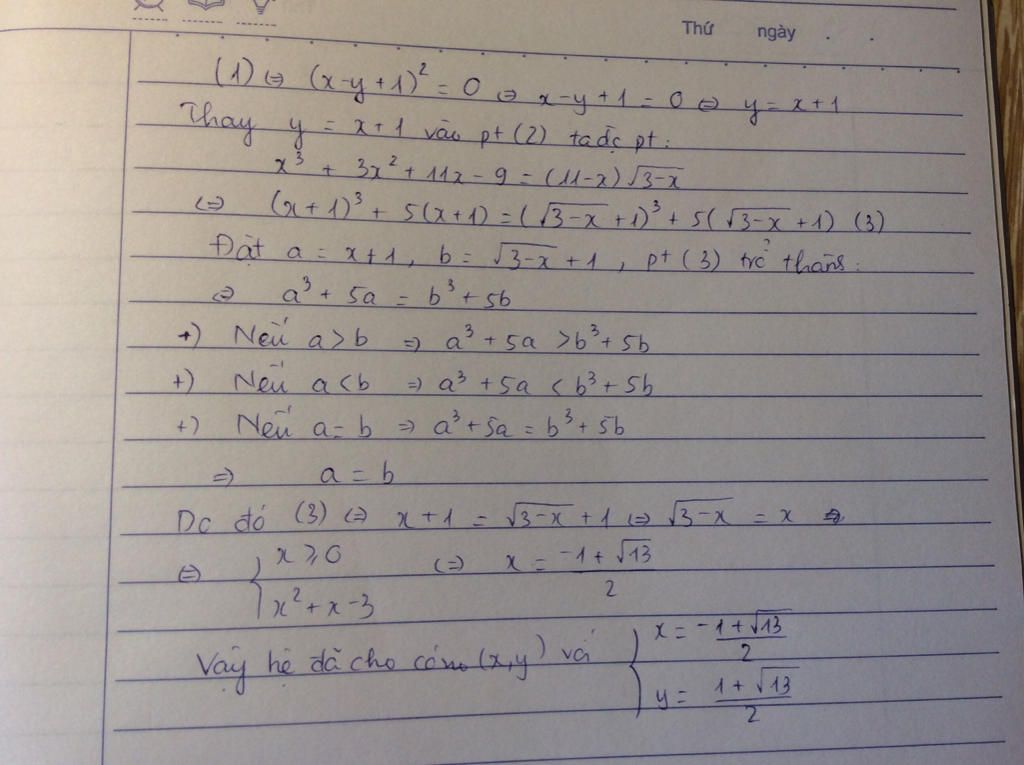 Thứ ngày . .
(1) ⇔ (x-y+1)² = 0 ⇔ x-y+1 = 0 ⇔ y = x+1
Thay y = x+1 vào pt (2) ta đc pt:
x³ + 3x² + 11x - 9 = (11-x)√(3-x)
⇔ (x+1)³ + 5(x+1) = (√(3-x) +1)³ + 5(√(3-x) +1) (3)
Đặt a = x+1, b = √(3-x) +1, pt (3) trở thành:
⇔ a³ + 5a = b³ + 5b
+) Nếu a > b ⇒ a³ + 5a > b³ + 5b
+) Nếu a < b ⇒ a³ + 5a < b³ + 5b
+) Nếu a = b ⇒ a³ + 5a = b³ + 5b
⇒ a = b
Do đó (3) ⇔ x+1 = √(3-x) +1 ⇔ √(3-x) = x
⇔ { x ≥ 0 ; x² + x - 3 ⇔ x = (-1+√13)/2
Vậy hệ đã cho có (x,y) với { x = (-1+√13)/2
y = (1+√13)/2